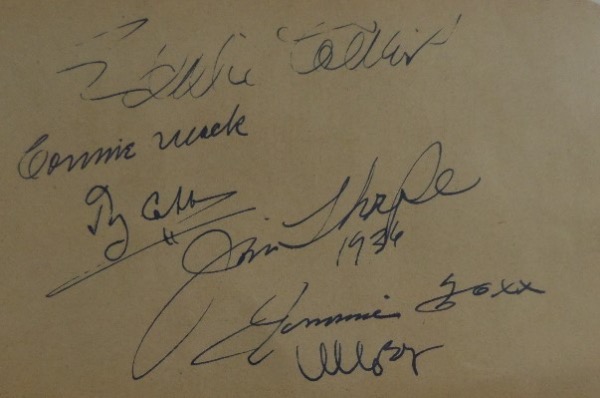 Eddie Collins
Connie Mack
Ty Cobb
Jim Thorpe
1936
Jimmie Foxx